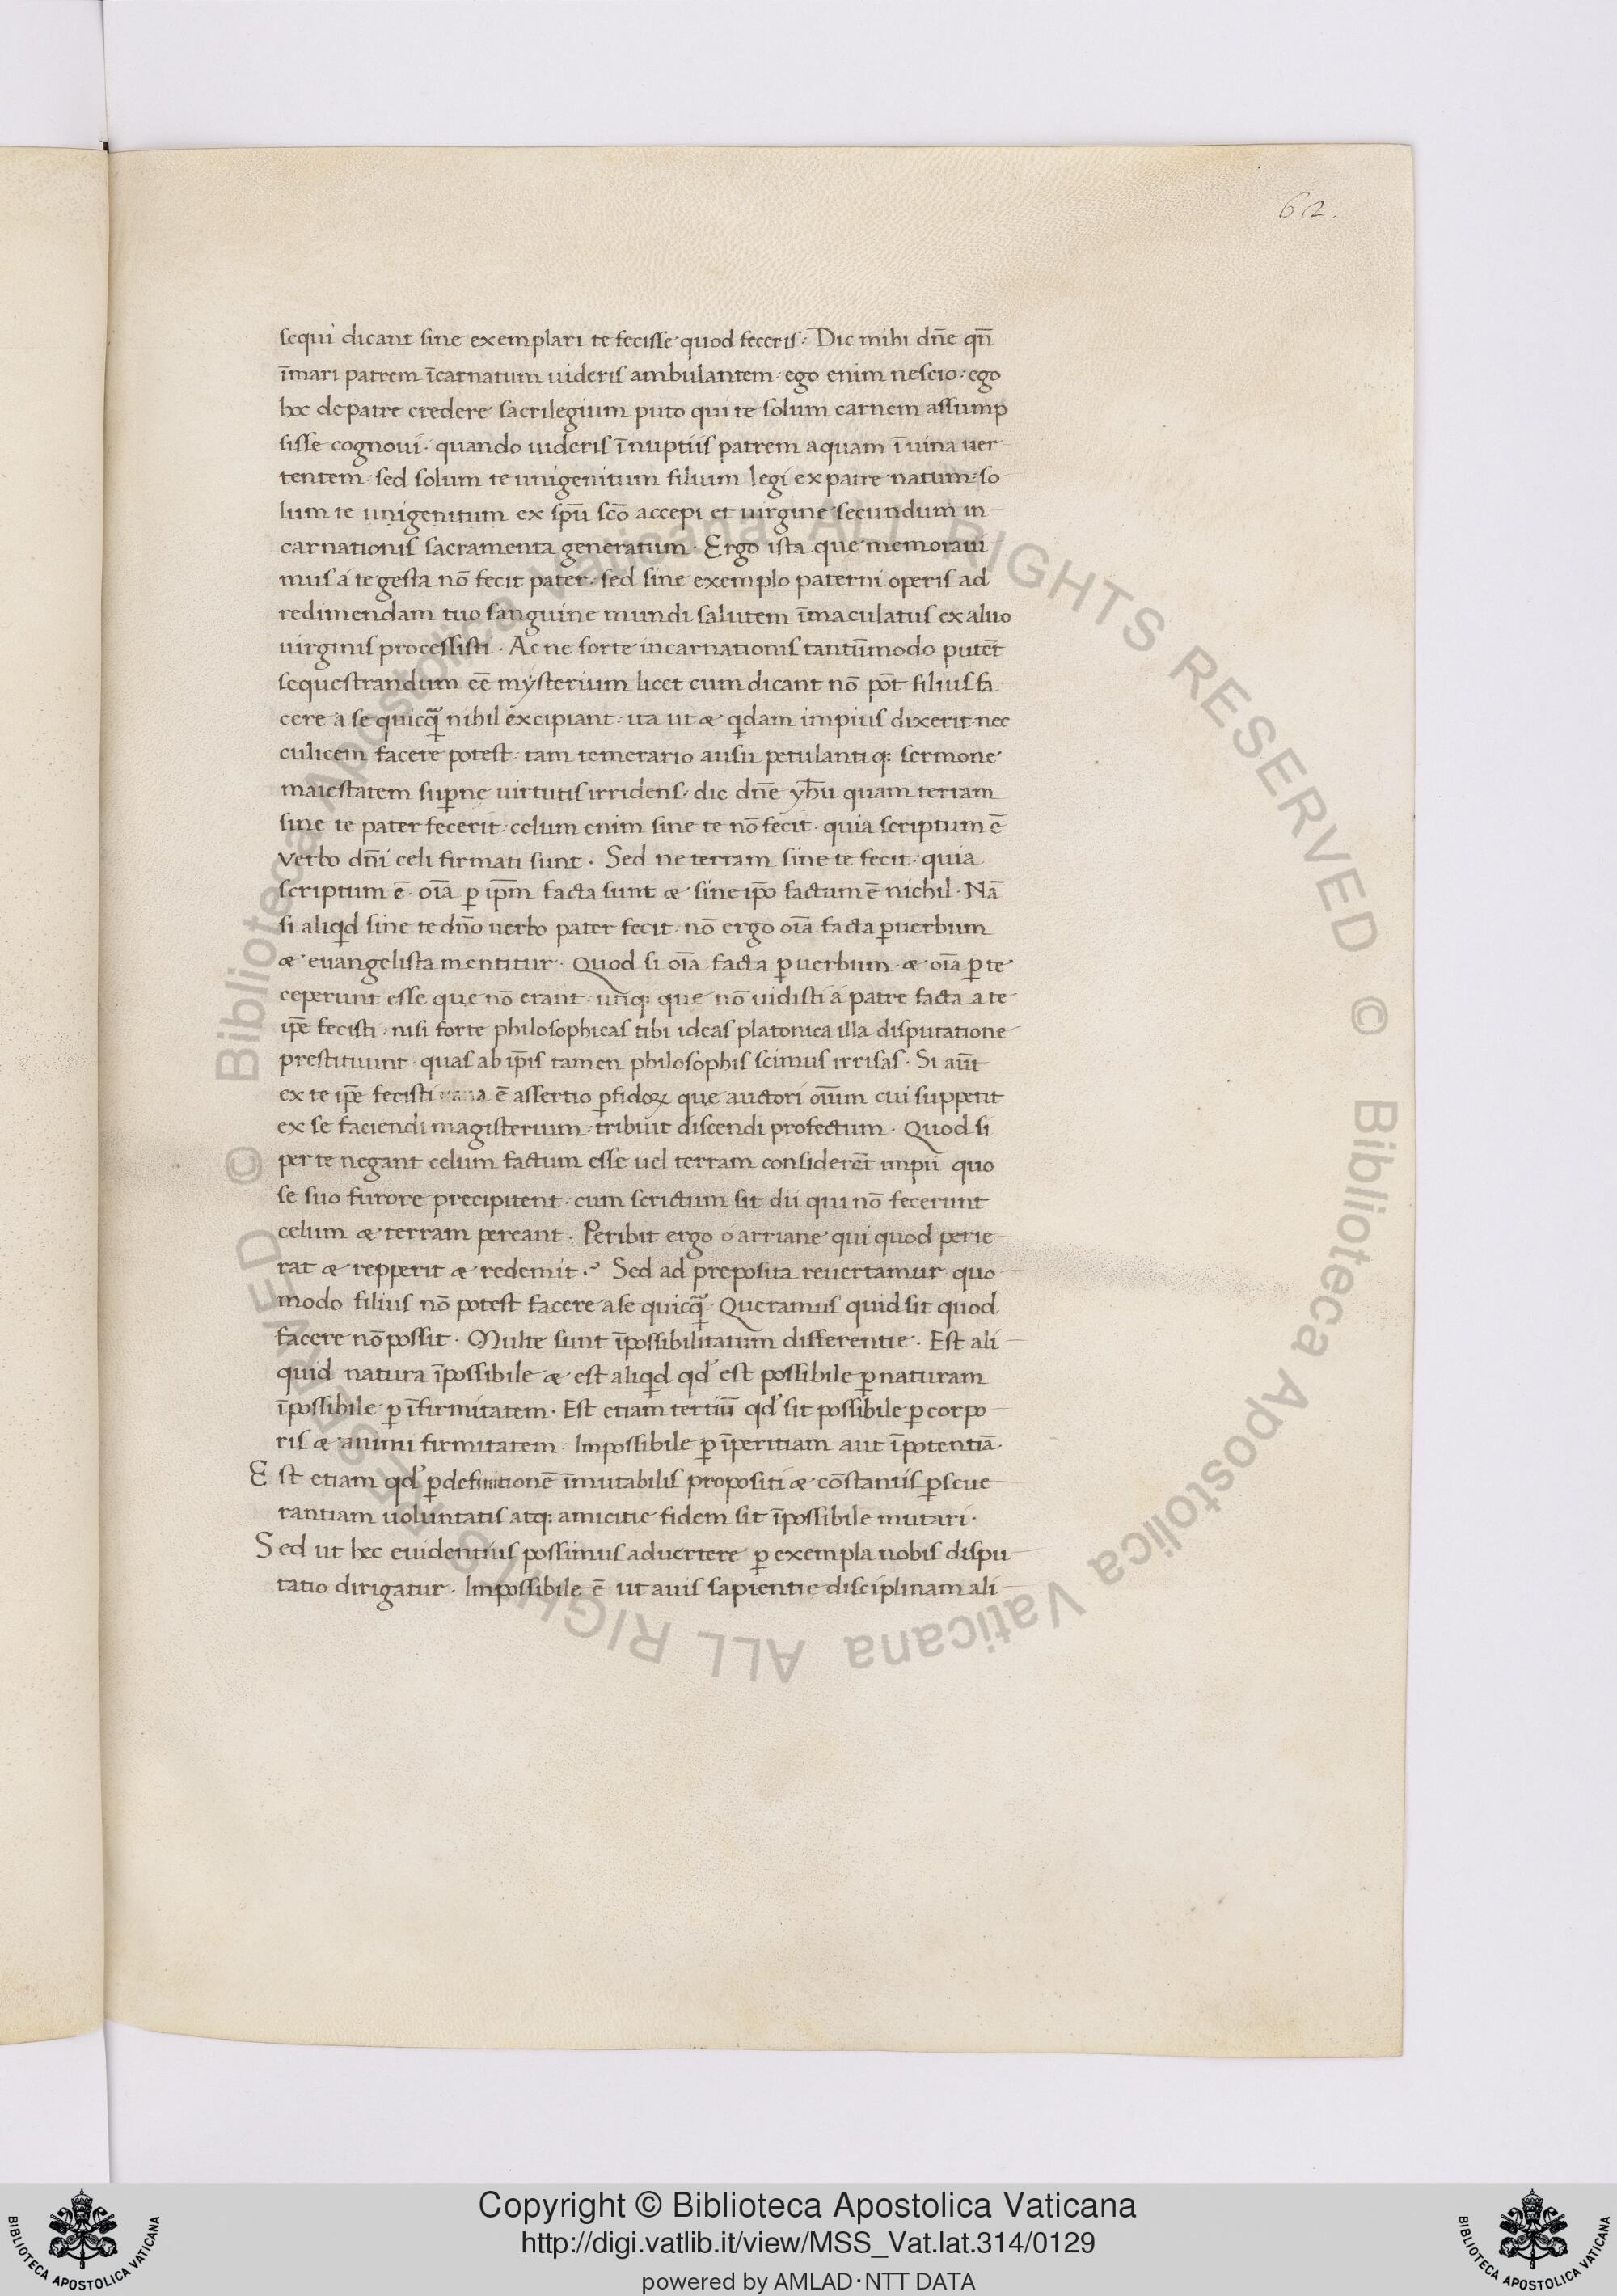 62.
sequi dicant sine exemplari te fecisse quod feceris. Dic mihi dn̄e qn̄
ī mari patrem īcarnatum uideris ambulantem. ego enim nescio. ego
hoc de patre credere sacrilegium puto qui te solum carnem assump
sisse cognoui. quando uideris ī nuptiis patrem aquam ī uina uer
tentem. sed solum te unigenitum filium legi ex patre natum. so
lum te unigenitum ex sp̄u sc̄o accepi et uirgine secundum in
carnationis sacramenta generatum. Ergo ista que memoraui
mus á te gesta nō fecit pater. sed sine exemplo paterni operis ad
redimendam tuo sanguine mundi salutem īmaculatus ex aluo
uirginis processisti. Ac ne forte incarnationis tantūmodo putēt
sequestrandum eē mysterium licet cum dicant nō pōt filius fa
cere a se quicq̄ nihil excipiant. ita ut & qdam impius dixerit. nec
culicem facere potest. tam temerario ausu petulanti q: sermone
maiestatem sup̄ne uirtutis irridens. dic dn̄e yh̄u quam terram
sine te pater fecerit. celum enim sine te nō fecit. quia scriptum ē
verbo dn̄i celi firmati sunt. Sed ne terram sine te fecit. quia
scriptum ē. oīa ꝑ ip̄m facta sunt & sine ip̄o factum ē nichil. Nā
si aliqd sine te dn̄o uerbo pater fecit. nō ergo oīa facta ꝑ uerbum
& euangelista mentitur. Quod si oīa facta ꝑ uerbum & oīa ꝑ te
ceperunt esse que nō erant. utiq: que nō uidisti á patre facta a te
ip̄e fecisti. nisi forte philosophicas tibi ideas platonica illa disputatione
prestituunt. quas ab ip̄is tamen philosophis scimus irrisas. Si aūt
ex te ip̄e fecisti uana ē assertio ꝑfidoꝝ que auctori oīum cui suppetit
ex se faciendi magisterium. tribuit discendi profectum. Quod si
per te negant celum factum esse uel terram considerēt impii quo
se suo furore precipitent. cum scrictum sit dii qui nō fecerunt
celum & terram pereant. Peribit ergo ó arriane qui quod perie
rat & repperit & redemit. Sed ad preposita reuertamur quo
modo filius nō potest facere a se quicq̄. Queramus quid sit quod
facere nō possit. Multe sunt īpossibilitatum differentie. Est ali
quid natura īpossibile & est aliqd qd' est possibile ꝑ naturam
īpossibile ꝑ īfirmitatem. Est etiam tertiū qd' sit possibile ꝑ corpo
ris & animi firmitatem. Impossibile ꝑ īperitiam aut īpotentiā.
Est etiam qd' ꝑ definitionē īmutabilis propositi & cōstantis ꝑseue
rantiam uoluntatis atq: amicitie fidem sit īpossibile mutari.
Sed ut hec euidentius possimus aduertere ꝑ exempla nobis dispu
tatio dirigatur. Impossibile ē ut auis sapientie disciplinam ali
© Biblioteca Apostolica Vaticana ALL RIGHTS RESERVED © Biblioteca Apostolica Vaticana ALL RIGHTS RESERVED
Copyright © Biblioteca Apostolica Vaticana
http://digi.vatlib.it/view/MSS_Vat.lat.314/0129
powered by AMLAD·NTT DATA
BIBLIOTECA APOSTOLICA VATICANA
BIBLIOTECA APOSTOLICA VATICANA